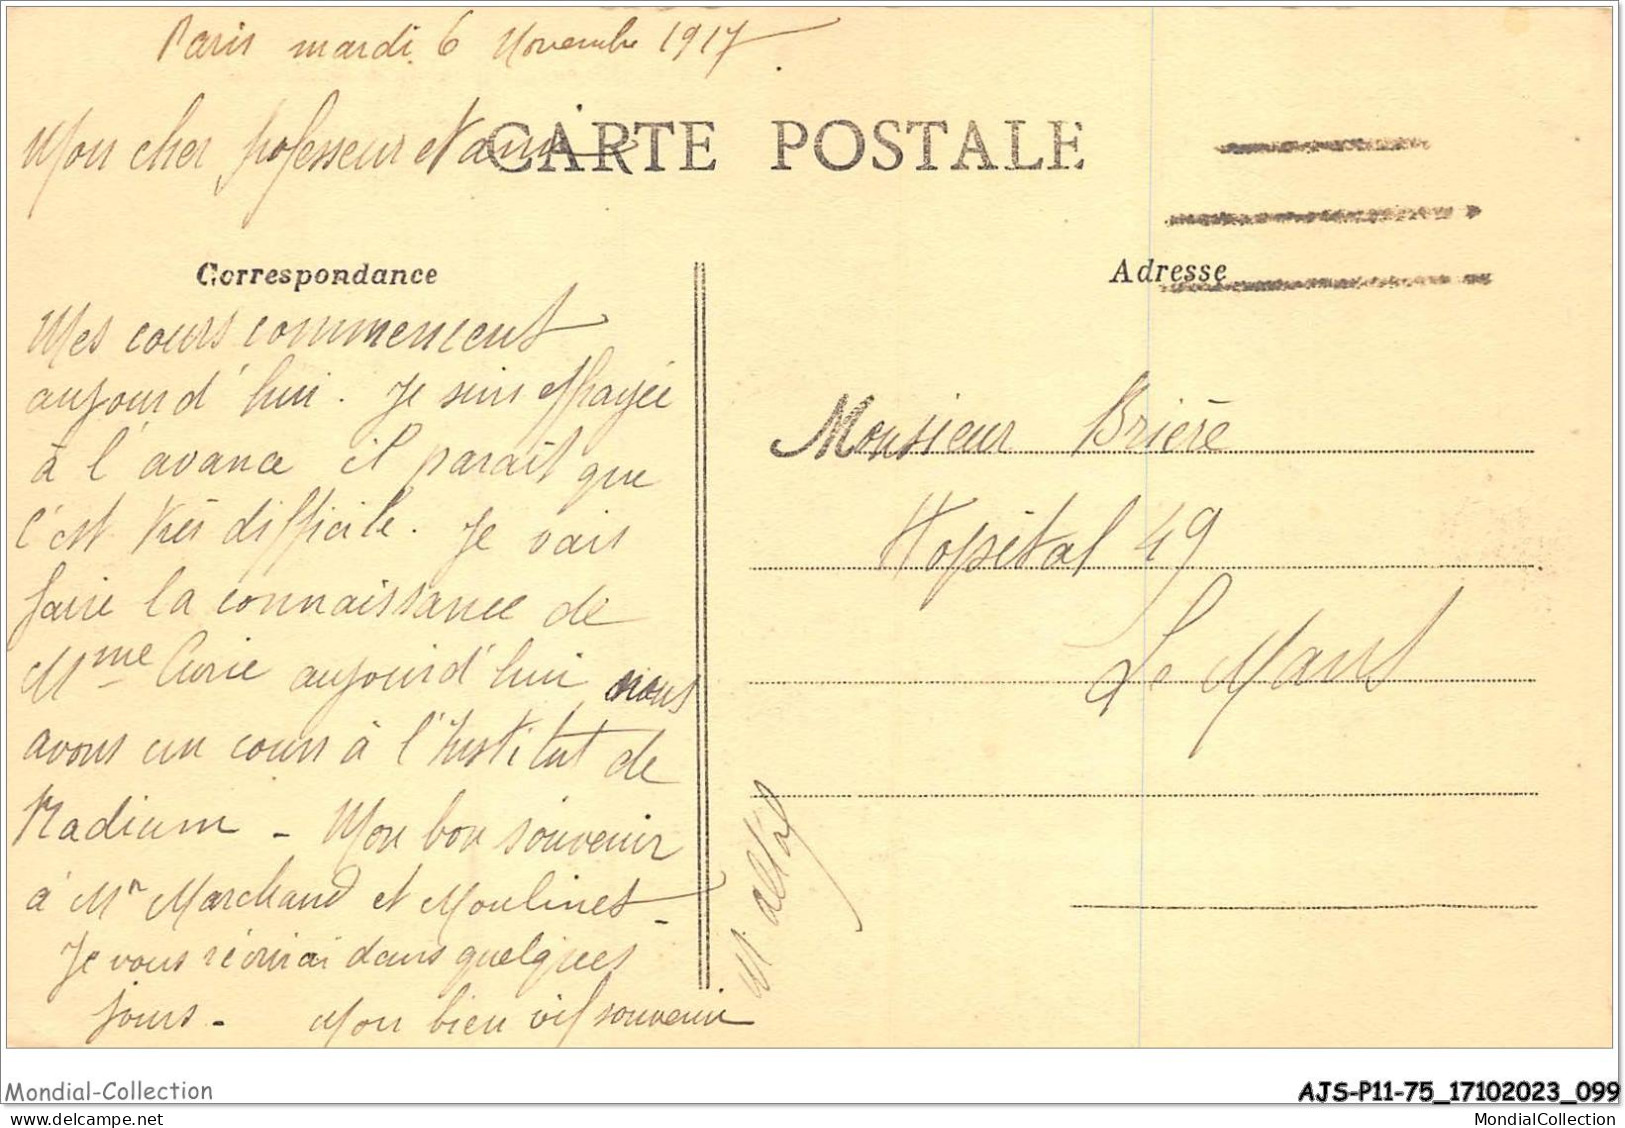 Paris mardi 6 Novembre 1917
Mon cher professeur et ami
CARTE POSTALE
Correspondance
Mes cours commencent
aujourd'hui. Je suis effrayée
à l'avance il parait que
c'est très difficile. Je vais
faire la connaissance de
Mme Curie aujourd'hui nous
avons un cours à l'Institut de
Radium - Mon bon souvenir
à Mr Marchand et Moulinet -
Je vous récrirai dans quelques
jours - Mon bien vif souvenir
Adresse
Monsieur Brière
Hopital 49
Le Mans
Mondial-Collection
AJS-P11-75_17102023_099
MondialCollection